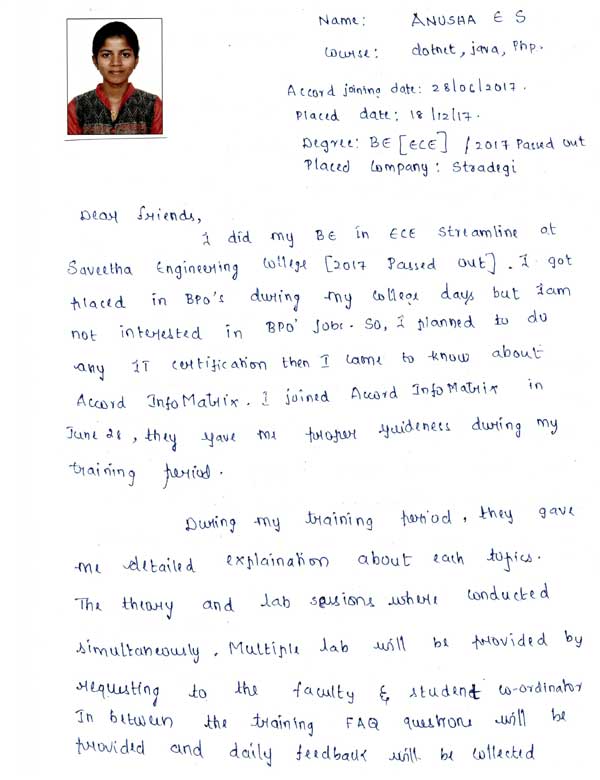 Name: ANUSHA E S
Course: dotnet, java, Php.
Accord joining date: 28/06/2017.
Placed date: 18/12/17.
Degree: BE [ECE] / 2017 Passed out
Placed Company: Stradegi
Dear friends,
I did my BE in ECE Streamline at
Saveetha Engineering College [2017 Passed out]. I got
placed in BPO's during my college days but iam
not interested in BPO' Jobs. So, I planned to do
any IT certification then I came to know about
Accord InfoMatrix. I joined Accord InfoMatrix in
June 28, they gave me proper guideness during my
training period.
During my training period, they gave
me detailed explaination about each topics.
The theory and lab sessions where conducted
simultaneously. Multiple lab will be provided by
requesting to the faculty & student co-ordinator
In between the training FAQ questions will be
provided and daily feedback will be collected